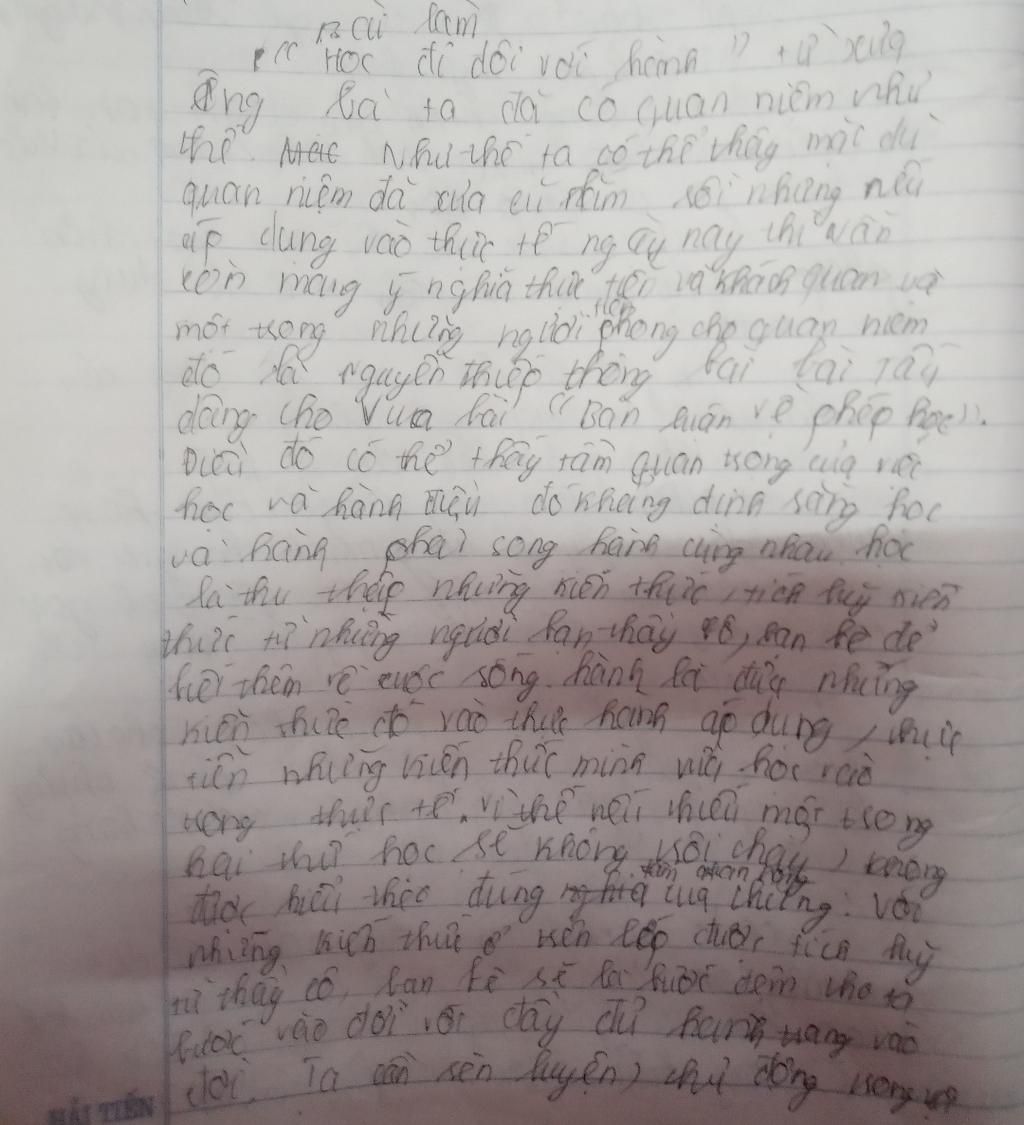 Bài làm
" Học đi đôi với hành " từ xưa
ông bà ta đã có quan niệm như
thế. Như thế ta có thể thấy mặc dù
quan niệm đã xưa cũ rồi nhưng nếu
áp dụng vào thực tế ngày nay thì vẫn
còn mang ý nghĩa thực tiễn và khách quan và
một trong những người tiên phong cho quan niệm
đó là Nguyễn Thiếp thông bài tấu
dâng cho vua bài "Bàn luận về phép học".
Điều đó có thể thấy tầm quan trọng của việc
học và hành điều đó khẳng định rằng học
và hành phải song hành cùng nhau. học
là thu thập những kiến thức, tích luỹ kiến
thức từ những người bạn, thầy cô, bạn bè để
biết thêm về cuộc sống. hành là đưa những
kiến thức đó vào thực hành áp dụng, thực
tiễn những kiến thức mình vừa học vào
trong thực tế. vì thế nếu thiếu một trong
hai thứ học sẽ không trôi chảy, không
được hiểu theo đúng tầm quan trọng của chúng. Với
những kiến thức ở trên lớp được tích luỹ
từ thầy cô, bạn bè sẽ là bước đệm cho ta
bước vào đời với đầy đủ hành trang vào
đời. Ta cần rèn luyện, chủ động trong
HẢI TIẾN